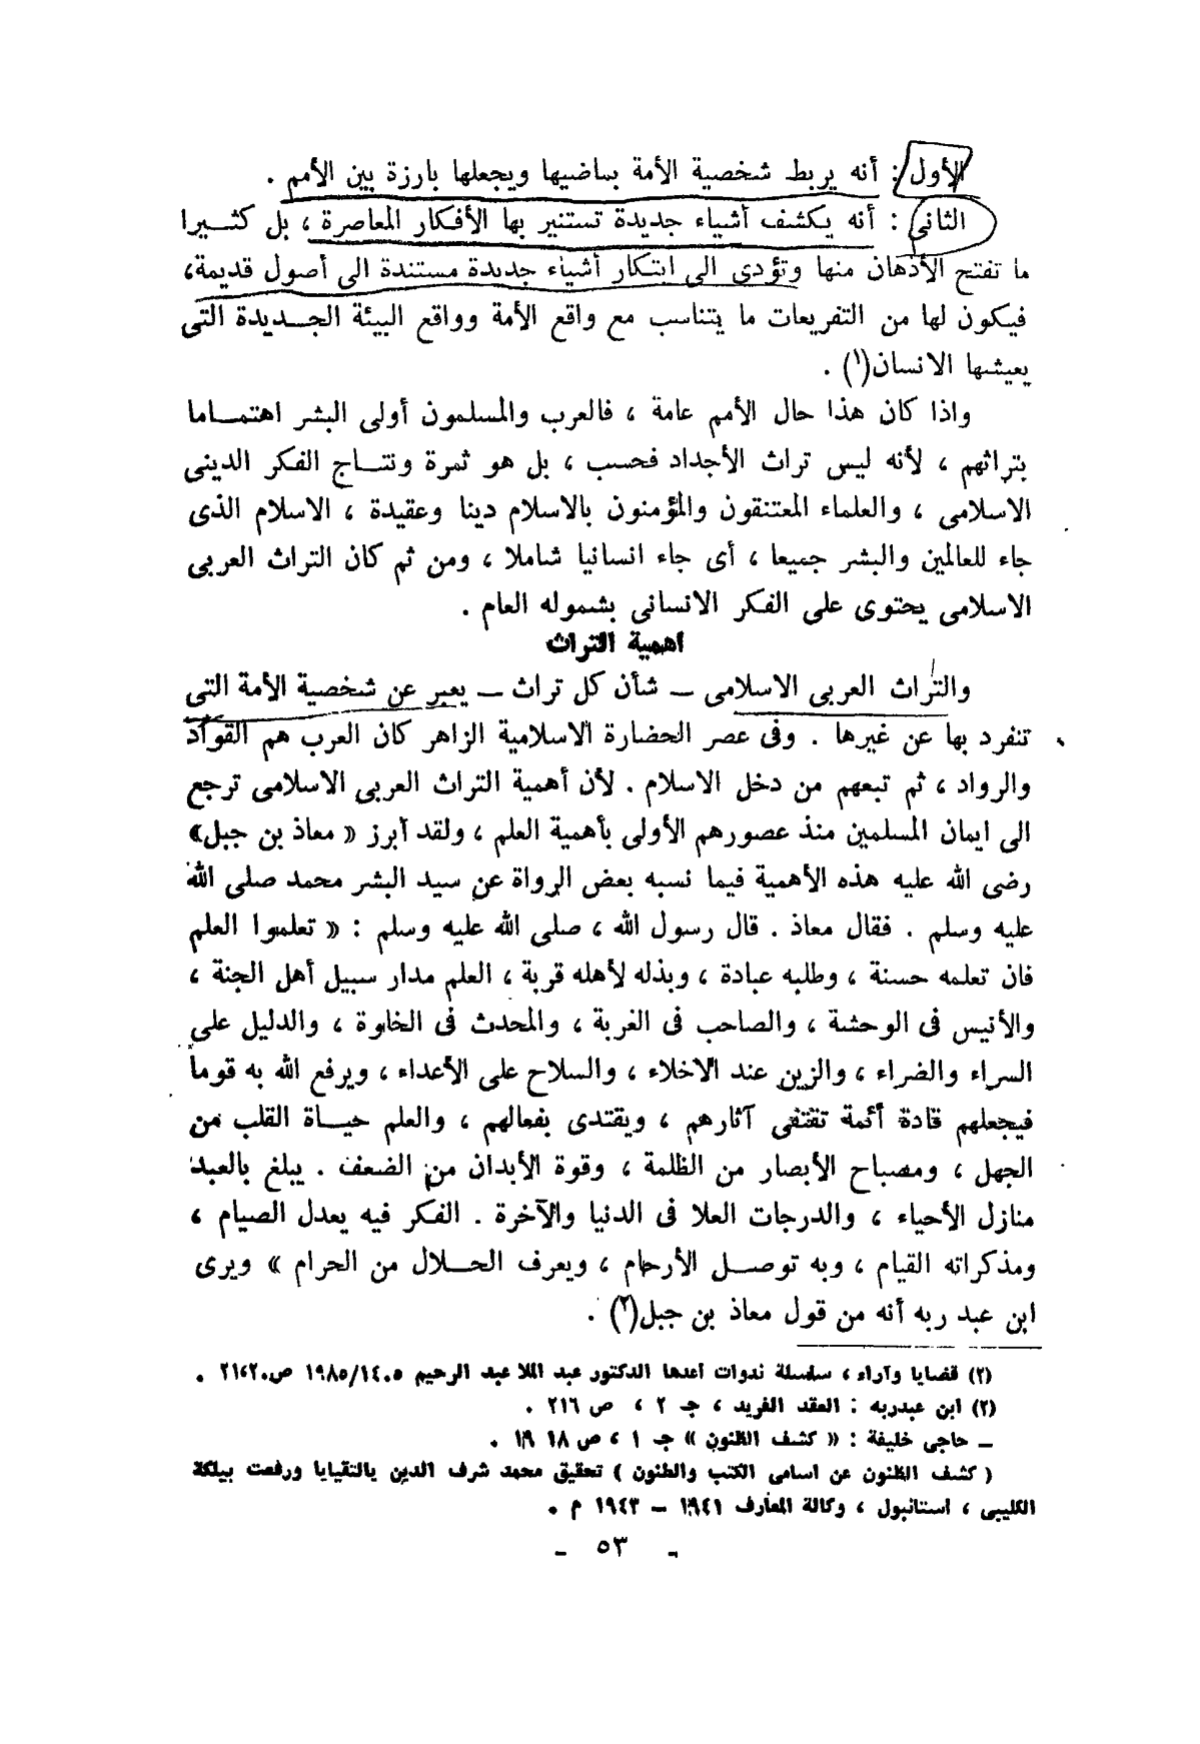 الأول : أنه يربط شخصية الأمة بماضيها ويجعلها بارزة بين الأمم .
الثانى : أنه يكشف أشياء جديدة تستنير بها الأفكار المعاصرة ، بل كثـيرا
ما تفتح الأذهان منها وتؤدى الى ابتكار أشياء جديدة مستندة الى أصول قديمة،
فيكون لها من التفريعات ما يتناسب مع واقع الأمة وواقع البيئة الجـديدة التى
يعيشها الانسان(١) .
واذا كان هذا حال الأمم عامة ، فالعرب والمسلمون أولى البشر اهتمـاما
بتراثهم ، لأنه ليس تراث الأجداد فحسب ، بل هو ثمرة ونتـاج الفكر الدينى
الاسلامى ، والعلماء المعتنقون والمؤمنون بالاسلام دينا وعقيدة ، الاسلام الذى
جاء للعالمين والبشر جميعا ، أى جاء انسانيا شاملا ، ومن ثم كان التراث العربى
الاسلامى يحتوى على الفكر الانسانى بشموله العام .
أهمية التراث
والتراث العربى الاسلامى – شأن كل تراث – يعبر عن شخصية الأمة التى
تنفرد بها عن غيرها . وفى عصر الحضارة الاسلامية الزاهر كان العرب هم القواد
والرواد ، ثم تبعهم من دخل الاسلام . لأن أهمية التراث العربى الاسلامى ترجع
الى ايمان المسلمين منذ عصورهم الأولى بأهمية العلم ، ولقد أبرز « معاذ بن جبل»
رضى الله عليه هذه الأهمية فيما نسبه بعض الرواة عن سيد البشر محمد صلى الله
عليه وسلم . فقال معاذ . قال رسول الله ، صلى الله عليه وسلم : « تعلموا العلم
فان تعلمه حسنة ، وطلبه عبادة ، وبذله لأهله قربة ، العلم مدار سبيل أهل الجنة ،
والأنيس فى الوحشة ، والصاحب فى الغربة ، والمحدث فى الخلوة ، والدليل على
السراء والضراء ، والزين عند الاخلاء ، والسلاح على الأعداء ، ويرفع الله به قوماً
فيجعلهم قادة أئمة تقتفى آثارهم ، ويقتدى بفعالهم ، والعلم حيـاة القلب من
الجهل ، ومصباح الأبصار من الظلمة ، وقوة الأبدان من الضعف . يبلغ بالعبد
منازل الأحياء ، والدرجات العلا فى الدنيا والآخرة . الفكر فيه يعدل الصيام ،
ومذكراته القيام ، وبه توصـل الأرحام ، ويعرف الحـلال من الحرام » ويرى
ابن عبد ربه أنه من قول معاذ بن جبل(٢) .
(٢) قضايا وآراء ، سلسلة ندوات أعدها الدكتور عبد اللا عبد الرحيم ١٩٨٥/١٤٠٥ ص٢١،٢٠ .
(٢) ابن عبدربه : العقد الفريد ، جـ ٢ ، ص ٢١٦ .
– حاجى خليفة : « كشف الظنون » جـ ١ ، ص ١٨ ١٩ .
( كشف الظنون عن اسامى الكتب والظنون ) تحقيق محمد شرف الدين يالتقيايا ورفعت بيلكة
الكليبى ، استانبول ، وكالة المعارف ١٩٤١ – ١٩٤٣ م .
- ٥٣ -